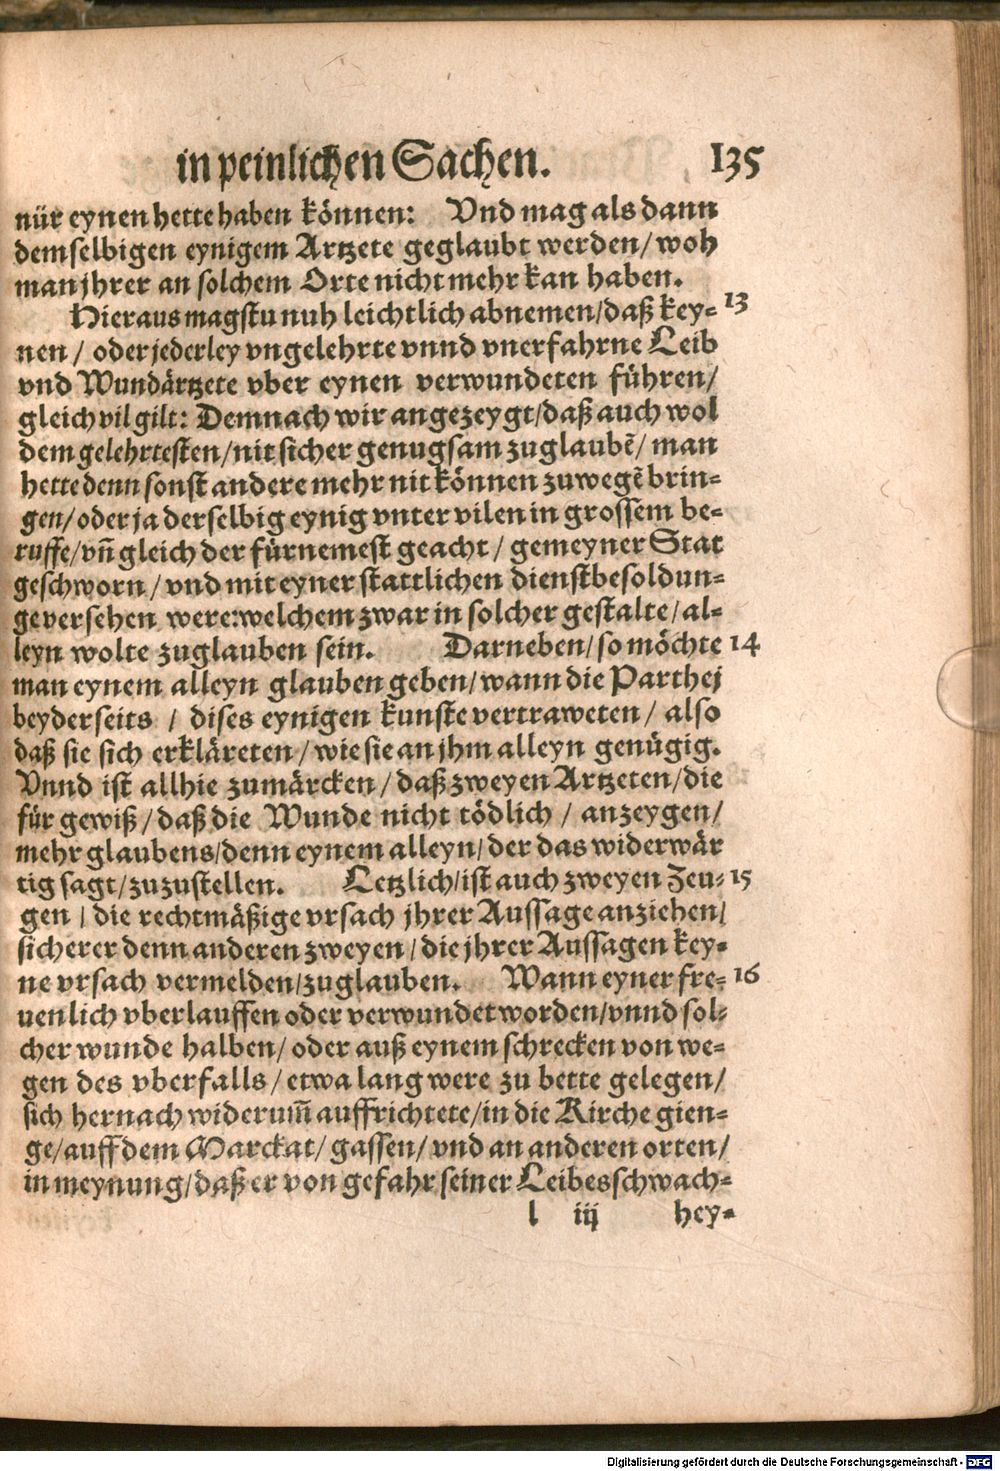 in peinlichen Sachen. 135
nür eynen hette haben können: Vnd mag als dann
demselbigen eynigem Artzete geglaubt werden/ woh
man jhrer an solchem Orte nicht mehr kan haben.
Hieraus magstu nuh leichtlich abnemen/ daß key- 13
nen / oder jederley vngelehrte vnnd vnerfahrne Leib
vnd Wundärtzete vber eynen verwundeten führen/
gleich vil gilt: Demnach wir angezeygt/ daß auch wol
dem gelehrtesten/ nit sicher genugsam zuglaubẽ/ man
hette denn sonst andere mehr nit können zuwegẽ brin-
gen/ oder ja derselbig eynig vnter vilen in grossem be-
ruffe/ vñ gleich der fürnemest geacht / gemeyner Stat
geschworn / vnd mit eyner stattlichen dienstbesoldun-
ge versehen were: welchem zwar in solcher gestalte/ al-
leyn wolte zuglauben sein. Darneben/ so möchte 14
man eynem alleyn glauben geben/ wann die Parthej
beyderseits / dises eynigen kunste vertraweten / also
daß sie sich erkläreten / wie sie an jhm alleyn genügig.
Vnnd ist allhie zumärcken / daß zweyen Artzeten/ die
für gewiß / daß die Wunde nicht tödlich / anzeygen/
mehr glaubens/ denn eynem alleyn/ der das widerwär
tig sagt/ zuzustellen. Letzlich/ ist auch zweyen Zeu- 15
gen / die rechtmäßige vrsach jhrer Aussage anziehen/
sicherer denn anderen zweyen / die jhrer Aussagen key-
ne vrsach vermelden/ zuglauben. Wann eyner fre- 16
uenlich vberlauffen oder verwundet worden/ vnnd sol-
cher wunde halben/ oder auß eynem schrecken von we-
gen des vberfalls / etwa lang were zu bette gelegen/
sich hernach widerum̃ auffrichtete/ in die Kirche gien-
ge/ auff dem Marckat/ gassen/ vnd an anderen orten/
in meynung/ daß er von gefahr seiner Leibesschwach-
l iij hey-
Digitalisierung gefördert durch die Deutsche Forschungsgemeinschaft - DFG